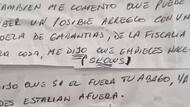 AMBIEN ME COMENTO QUE PUEDE
BER UN POSIBLE ARREGLO CON UN
DELA DE GARANTIAS, DE LA FISCALIA
RA COSA, ME DIJO QUE
(SHOWS)
DIJO QUE SI EL FUERA TU ABAGO, YA
DES ESTARIAN AFUERA.